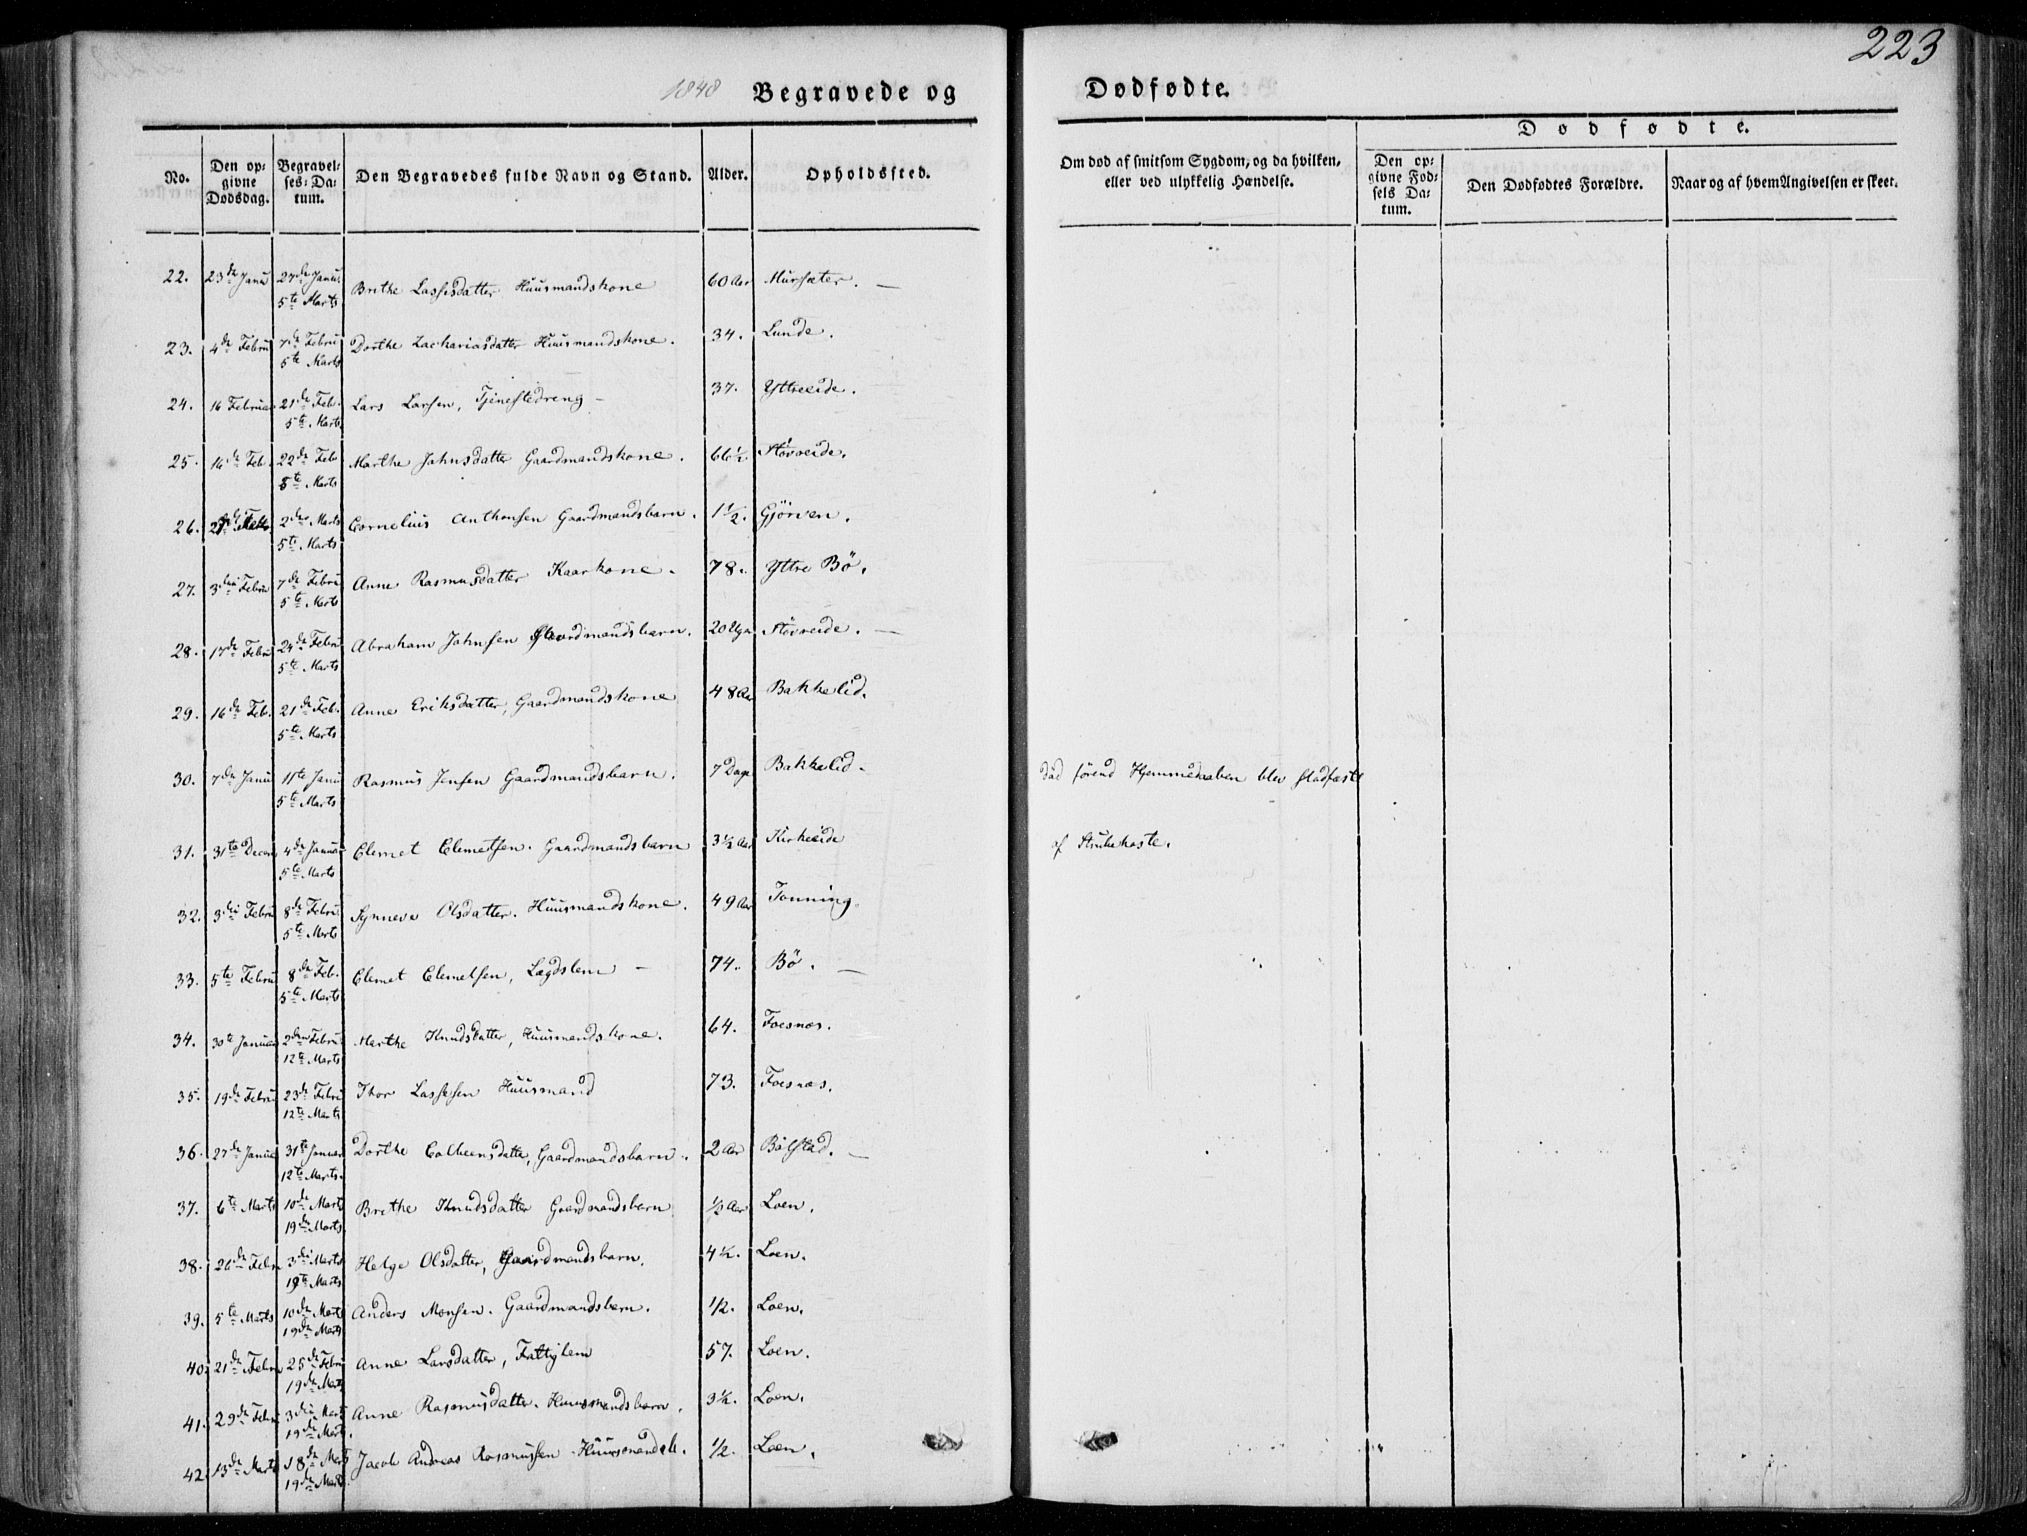 223
1848 Begravede og Dødfødte.
No. Den opgivne Dødsdag. Begravelses-Datum. Den Begravedes fulde Navn og Stand. Alder. Opholdssted. Om død af smitsom Sygdom, og da hvilken, eller ved ulykkelig Hændelse. Dødfødte. Den opgivne Fødsels Datum. Den Dødfødtes Forældre. Naar og af hvem Angivelsen er skeet.
22. 23de Janu 27de Janu. 5te Marts Brithe Lassesdatter Huusmandskone 60 Aar Mursæter. —
23. 4de Febru 7de Febru 5te Marts Dorthe Zachariasdatter Huusmandskone. 34. Lunde.
24. 16 Februar 21de Feb. 5te Marts Lars Larsen, Tjenestedreng – 37. Yttreeide.
25. 16de Feb. 22de Feb 5te Marts Marthe Johnsdatter Gaardmandskone. 66½ Støvreide.
26. 2den Marts 5te Marts Cornelius Anthonsen Gaardmandsbarn. 1½. Gjörven.
27. 3die Febru 7de Febru 5te Marts Anne Rasmusdatter Kaarkone. 78. Yttre Bö.
28. 17de Febru 24de Febru 5te Marts Abraham Johnsen Gaardmandsbarn. 20 Uger Støvreide. —
29. 16de Feb. 21de Feb. 5te Marts Anne Eriksdatter, Gaardmandskone 48 Aar Bakkelid.
30. 7de Janu 11te Janu 5te Marts Rasmus Jensen Gaardmandsbarn. 7 Dage Bakkelid – död förend Hjemmedaaben blev stadfæstet
31. 31te Decem 4de Januar 5te Marts Clemet Clemetsen. Gaardmandsbarn 3½ Aar Kirkeeide af Strubehoste.
32. 3die Febru 8de Febru. 5te Marts Synneve Olsdatter. Huusmandskone. 49 Aar Tonning.
33. 5te Febru 8de Feb. 5te Marts Clemet Clemetsen, Lægdslem – 74. Bö. —
34. 30te Januar 2den Febru. 12te Marts Marthe Knudsdatter, Huusmandskone. 64. Foesnæs.
35. 19de Febru 23de Febru 12te Marts Thor Lassesen Huusmand 73. Foesnæs.
36. 27de Janua 31te Januar 12te Marts. Dorthe Colbeensdatter, Gaardmandsbarn. 2 Aar Bölstad. —
37. 6te Marts 10de Marts 19de Marts Brithe Knudsdatter Gaardmandsbarn ½ Aar Loen.
38. 26de Febr 3die Marts 19de Marts Helge Olsdatter, Gaardmandsbarn. 4½. Loen.
39. 5te Marts 10de Marts 19de Marts Anders Monsen. Gaardmandsbarn. ½. Loen.
40. 21de Febru 25de Febru 19de Marts Anne Larsdatter, Fattiglem 57. Loen.
41. 29de Febru 3die Marts 19de Marts. Anne Rasmusdatter. Huusmandsbarn. 3½. Loen.
42. 13de Marts 18de Marts 19de Marts Jacob Andreas Rasmussen Huusmandsb. ½. Loen.